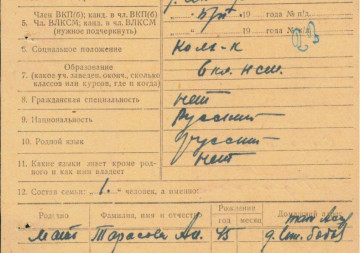 Член ВКП(б); канд. в чл. ВКП(б) б/п 19 года № п/б.
5. Член ВЛКСМ; канд. в чл. ВЛКСМ 19 года № п/к.
(нужное подчеркнуть)
6. Социальное положение кол-к
Образование
7. (какое уч. заведен. оконч., сколько классов или курсов, где и когда)
8. Гражданская специальность нет
9. Национальность Русский
10. Родной язык русский
11. Какие языки знает кроме родного и как ими владеет нет
12. Состав семьи: 1 человек, а именно:
Родство Фамилия, имя и отчество Рождение год месяц
мать Тарасова 45